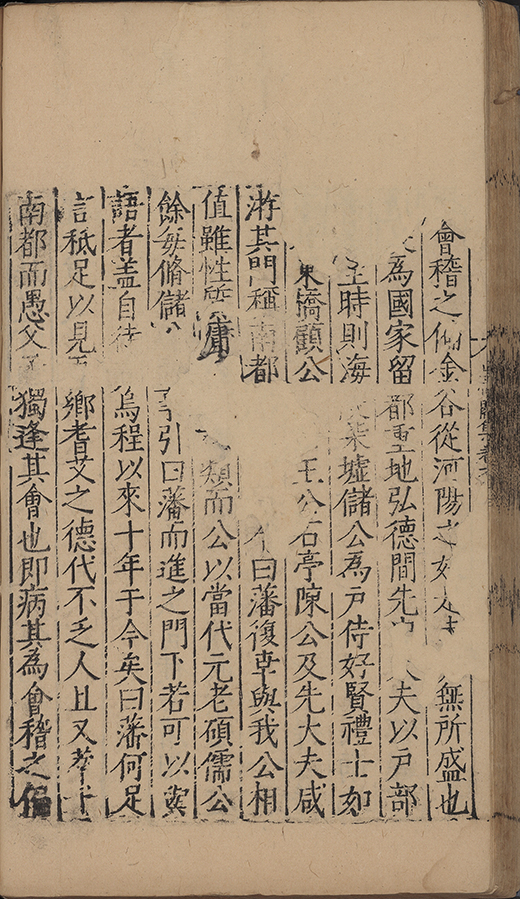 會稽之 金谷從河陽之 無所盛也
為國家留都重地弘德間先 夫以戶部
時則海 柴墟儲公為戶侍好賢禮士如
東橋顧公 王公石亭陳公及先大夫咸
游其門稱南都 曰藩復幸與我公相
值雖性質庸 類而公以當代元老碩儒公
餘每脩儲 引曰藩而進之門下若可以與
語者蓋自待 烏程以來十年于今矣曰藩何足
言秪足以見 鄉耆艾之德代不乏人且又
南都而愚父子獨逢其會也即病其為會稽之